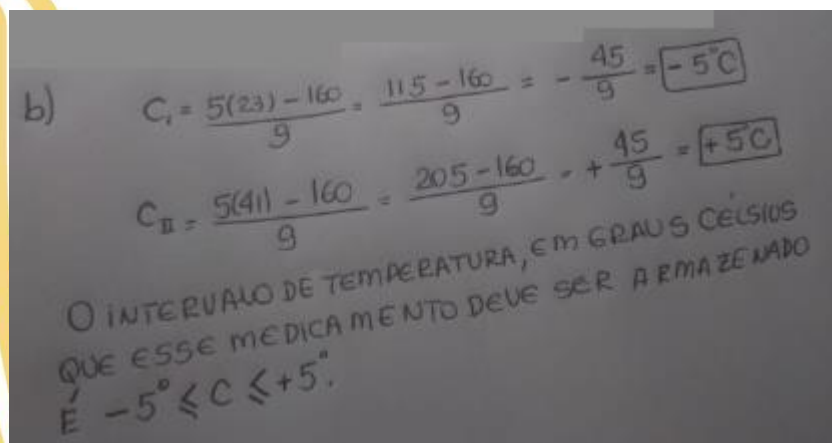 b) C₁ = 5(23) - 160 / 9 = 115 - 160 / 9 = - 45 / 9 = - 5°C
C_II = 5(41) - 160 / 9 = 205 - 160 / 9 - + 45 / 9 = + 5°C
O INTERVALO DE TEMPERATURA, EM GRAUS CELSIUS
QUE ESSE MEDICAMENTO DEVE SER ARMAZENADO
É -5° ⩽ C ⩽ +5°.